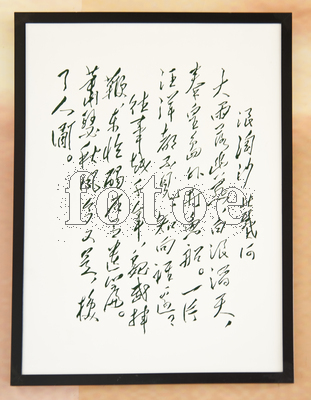 浪淘沙 北戴河
大雨落幽燕白浪滔天，
秦皇島外打魚船。一片
汪洋都不見 知向誰邊？
往事越千年，魏武揮
鞭，东臨碣石有遺篇。
蕭瑟秋風今又是，換
了人间。
fotoe